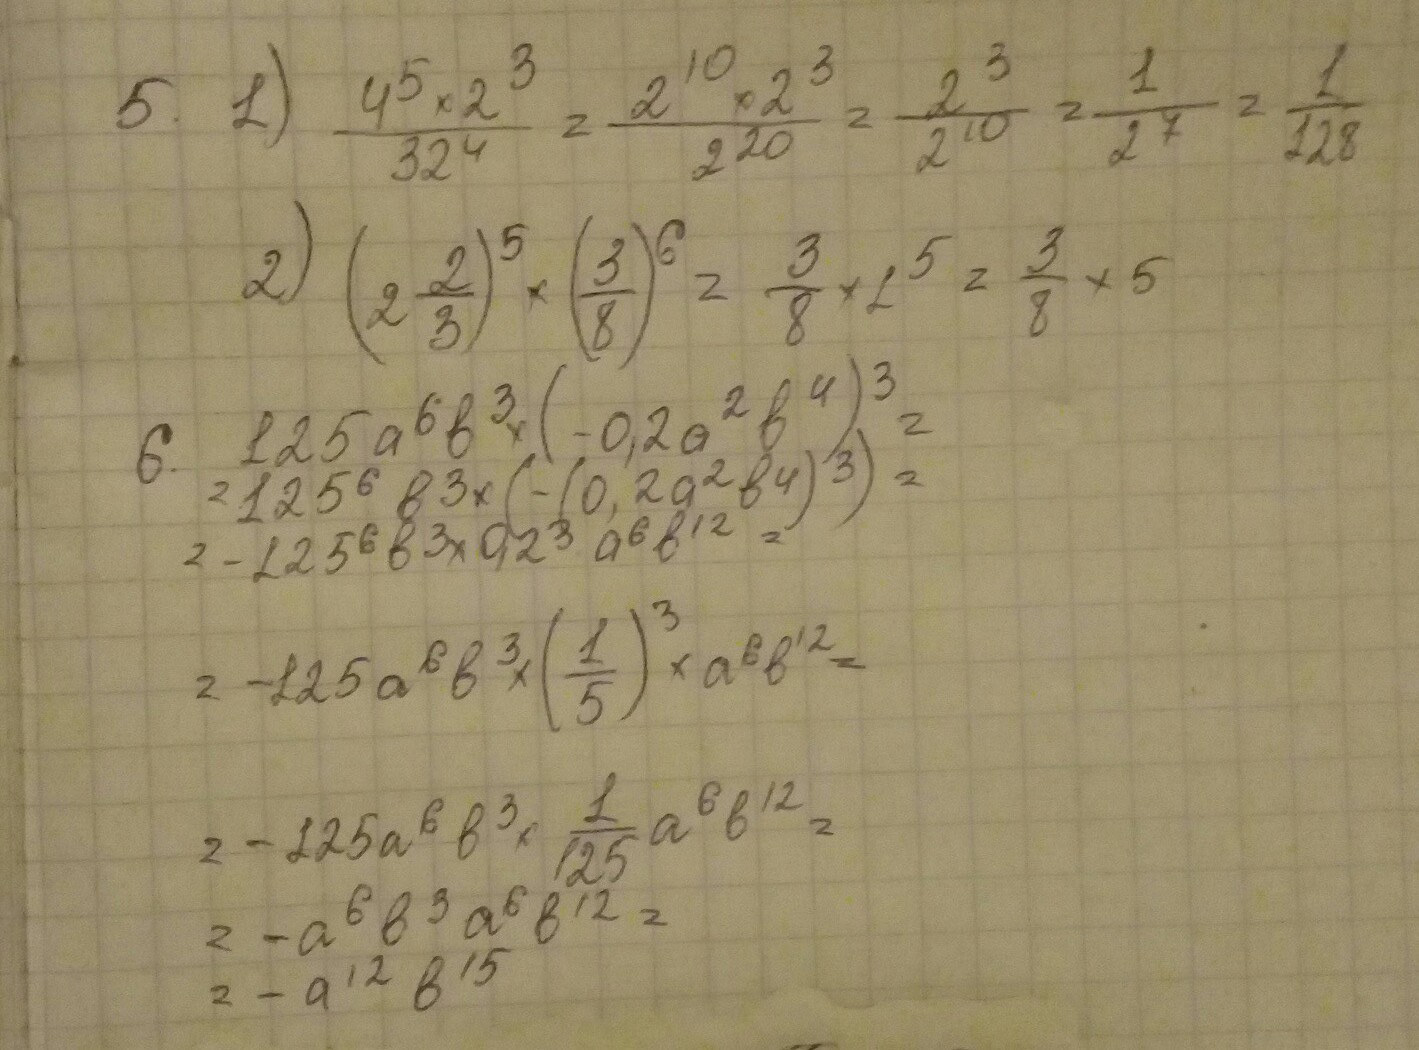 5. 1) (4⁵ × 2³)/32⁴ = (2¹⁰ × 2³)/2²⁰ = 2³/2¹⁰ = 1/2⁷ = 1/128
2) (2 2/3)⁵ × (3/8)⁶ = 3/8 × 1⁵ = 3/8 × 5
6. 125a⁶в³ × (-0,2a²в⁴)³ =
= 125⁶ в³ × (-(0,2a²в⁴)³) =
= -125⁶в³ × 0,2³ a⁶в¹² =
= -125a⁶в³ × (1/5)³ × a⁶в¹² =
= -125a⁶в³ × 1/125 a⁶в¹² =
= -a⁶в³a⁶в¹² =
= -a¹²в¹⁵